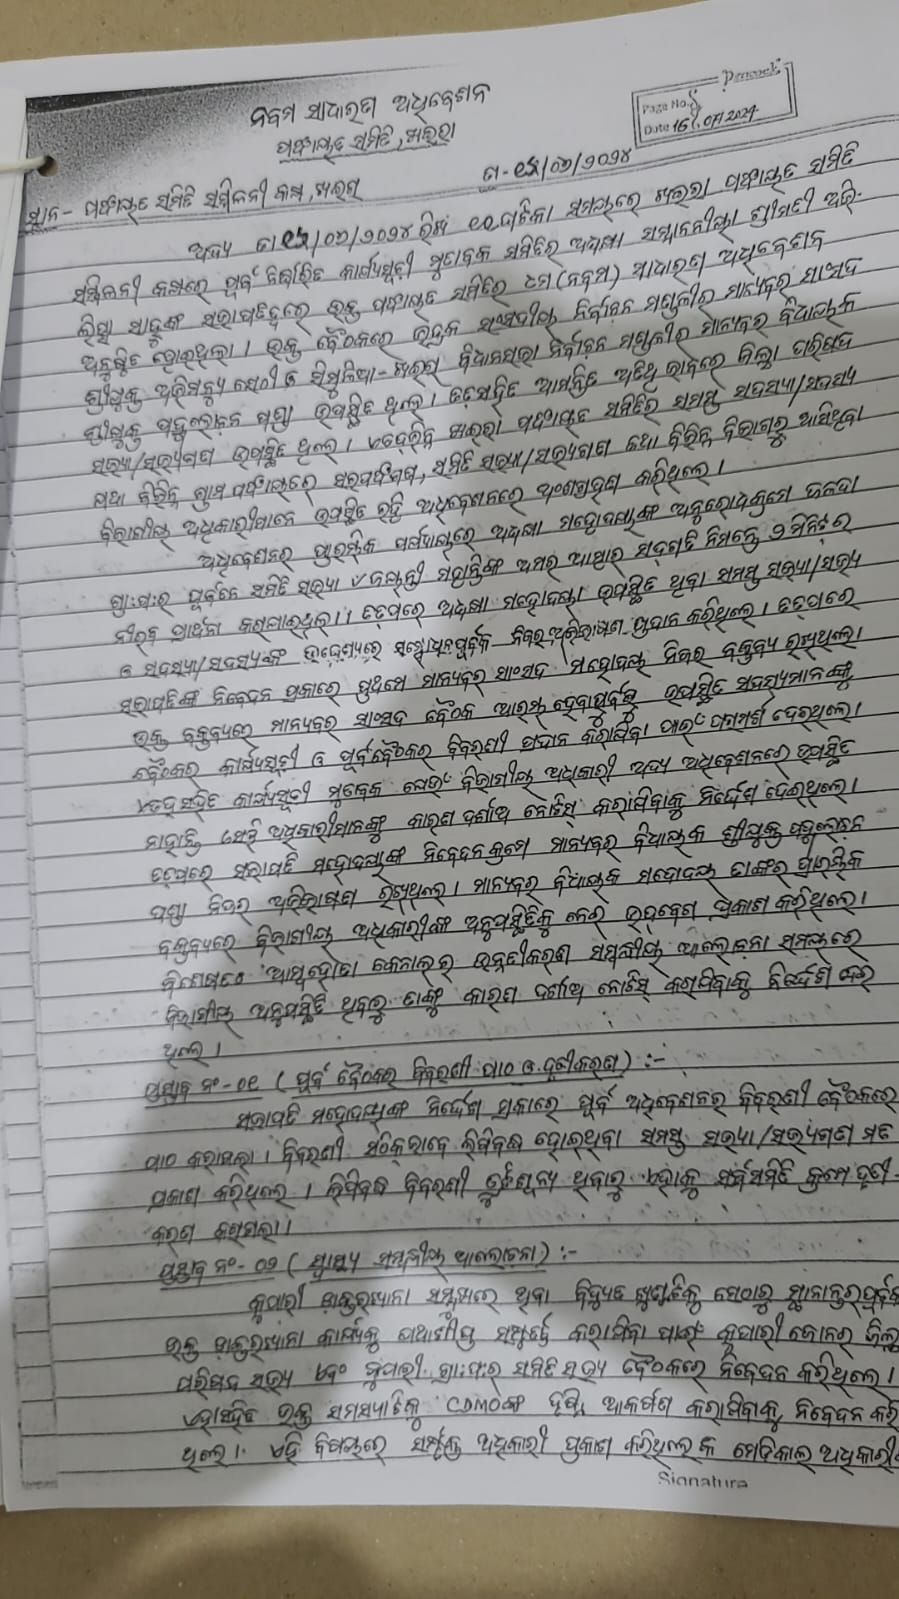 ନବମ ସାଧାରଣ ଅଧିବେଶନ
ପଞ୍ଚାୟତ ସମିତି, ଖଇରା
Peacock
Page No.
Date 16/07/2024
ସ୍ଥାନ - ପଞ୍ଚାୟତ ସମିତି ସମ୍ମିଳନୀ କକ୍ଷ, ଖଇରା
ଅଦ୍ୟ ତା ଘଟିକା ସମୟରେ ଖଇରା ପଞ୍ଚାୟତ ସମିତି
ସମ୍ମିଳନୀ କକ୍ଷରେ ପୂର୍ବ ନିର୍ଦ୍ଧାରିତ କାର୍ଯ୍ୟସୂଚୀ ମୁତାବକ ସମିତିର ଅଧ୍ୟକ୍ଷା ସମ୍ମାନନୀୟା ଶ୍ରୀମତୀ ଅଭି-
ଲିପ୍ସା ସାହୁଙ୍କ ସଭାପତିତ୍ୱରେ ଉକ୍ତ ପଞ୍ଚାୟତ ସମିତିର ୯ମ (ନବମ) ସାଧାରଣ ଅଧିବେଶନ
ଅନୁଷ୍ଠିତ ହୋଇଥିଲା । ଉକ୍ତ ବୈଠକରେ ଭଦ୍ରକ ସଂସଦୀୟ ନିର୍ବାଚନ ମଣ୍ଡଳୀର ମାନ୍ୟବର ସାଂସଦ
ଶ୍ରୀଯୁକ୍ତ ଅଭିମନ୍ୟୁ ସେଠୀ ଓ ସିମୁଳିଆ-ଖଇରା ବିଧାନସଭା ନିର୍ବାଚନ ମଣ୍ଡଳୀର ମାନ୍ୟବର ବିଧାୟକ
ଶ୍ରୀଯୁକ୍ତ ପଦ୍ମଲୋଚନ ପଣ୍ଡା ଉପସ୍ଥିତ ଥିଲେ । ତତ୍‌ସହିତ ଆମନ୍ତ୍ରିତ ଅତିଥି ଭାବରେ ଜିଲ୍ଲା ପରିଷଦ
ସଭ୍ୟା/ସଭ୍ୟଗଣ ଉପସ୍ଥିତ ଥିଲେ । ଏତଦ୍‌ଭିନ୍ନ ଖଇରା ପଞ୍ଚାୟତ ସମିତିର ସମସ୍ତ ସଦସ୍ୟା/ସଦସ୍ୟ
ଯଥା ବିଭିନ୍ନ ଗ୍ରାମ ପଞ୍ଚାୟତରେ ସରପଞ୍ଚଗଣ, ସମିତି ସଭ୍ୟା/ସଭ୍ୟଗଣ ତଥା ବିଭିନ୍ନ ବିଭାଗରୁ ଆସିଥିବା
ବିଭାଗୀୟ ଅଧିକାରୀମାନେ ଉପସ୍ଥିତ ରହି ଅଧିବେଶନରେ ଅଂଶଗ୍ରହଣ କରିଥିଲେ ।
ଅଧିବେଶନର ପ୍ରାରମ୍ଭିକ ପର୍ଯ୍ୟାୟରେ ଅଧ୍ୟକ୍ଷା ମହୋଦୟାଙ୍କ ଅନୁରୋଧକ୍ରମେ
ଗ୍ରା:ପ:ର ପୂର୍ବତନ ସମିତି ସଭ୍ୟା ମହାନ୍ତିଙ୍କ ଅମର ଆତ୍ମାର ସଦ୍‌ଗତି ନିମନ୍ତେ ୨ ମିନିଟ୍‌ର
ନୀରବ ପ୍ରାର୍ଥନା କରାଯାଇଥିଲା । ତତ୍‌ପରେ ଅଧ୍ୟକ୍ଷା ମହୋଦୟା ଉପସ୍ଥିତ ଥିବା ସମସ୍ତ ସଭ୍ୟା/ସଭ୍ୟ
ଓ ସଦସ୍ୟା/ସଦସ୍ୟଙ୍କ ଉଦ୍ଦେଶ୍ୟରେ ସମ୍ବୋଧନପୂର୍ବକ ନିଜର ଅଭିଭାଷଣ ପ୍ରଦାନ କରିଥିଲେ । ତତ୍‌ପରେ
ସଭାପତିଙ୍କ ନିବେଦନ ପ୍ରକାରେ ପ୍ରଥମେ ମାନ୍ୟବର ସାଂସଦ ମହୋଦୟ ନିଜର ବକ୍ତବ୍ୟ ରଖିଥିଲେ ।
ଉକ୍ତ ବକ୍ତବ୍ୟରେ ମାନ୍ୟବର ସାଂସଦ ବୈଠକ ଆରମ୍ଭ ହେବାପୂର୍ବରୁ ଉପସ୍ଥିତ ସଦସ୍ୟମାନଙ୍କୁ
ବୈଠକର କାର୍ଯ୍ୟସୂଚୀ ଓ ପୂର୍ବ ବୈଠକର ବିବରଣୀ ପ୍ରଦାନ କରାଯିବା ପାଇଁ ପରାମର୍ଶ ଦେଇଥିଲେ ।
ଏତଦ୍‌ସହିତ କାର୍ଯ୍ୟସୂଚୀ ମୁତାବକ ଯେଉଁ ବିଭାଗୀୟ ଅଧିକାରୀ ଅଦ୍ୟ ଅଧିବେଶନରେ ଉପସ୍ଥିତ
ନାହାନ୍ତି ସେହି ଅଧିକାରୀମାନଙ୍କୁ କାରଣ ଦର୍ଶାଅ ନୋଟିସ୍ କରାଯିବାକୁ ନିର୍ଦ୍ଦେଶ ଦେଇଥିଲେ ।
ତତ୍‌ପରେ ସଭାପତି ମହୋଦୟାଙ୍କ ନିବେଦନକ୍ରମେ ମାନ୍ୟବର ବିଧାୟକ ଶ୍ରୀଯୁକ୍ତ ପଦ୍ମଲୋଚନ
ପଣ୍ଡା ନିଜର ଅଭିଭାଷଣ ରଖିଥିଲେ । ମାନ୍ୟବର ବିଧାୟକ ମହୋଦୟ ତାଙ୍କର ପ୍ରାରମ୍ଭିକ
ବକ୍ତବ୍ୟରେ ବିଭାଗୀୟ ଅଧିକାରୀଙ୍କ ଅନୁପସ୍ଥିତିକୁ ନେଇ ଉଦ୍‌ବେଗ ପ୍ରକାଶ କରିଥିଲେ ।
ବିଶେଷତଃ କେନାଲର ଉନ୍ନତୀକରଣ ସମ୍ବନ୍ଧୀୟ ଆଲୋଚନା ସମୟରେ
ବିଭାଗୀୟ ଅନୁପସ୍ଥିତି ଥିବାରୁ ତାଙ୍କୁ କାରଣ ଦର୍ଶାଅ ନୋଟିସ୍ କରାଯିବାକୁ ନିର୍ଦ୍ଦେଶ ଦେଇ
ଥିଲେ ।
ପ୍ରସ୍ତାବ ନଂ - ୦୧ (ପୂର୍ବ ବୈଠକର ବିବରଣୀ ପାଠ ଓ ଦୃଢୀକରଣ) :-
ସଭାପତି ମହୋଦୟାଙ୍କ ନିର୍ଦ୍ଦେଶ ପ୍ରକାରେ ପୂର୍ବ ଅଧିବେଶନର ବିବରଣୀ ବୈଠକରେ
ପାଠ କରାଗଲା । ବିବରଣୀ ସଠିକ୍ ଭାବେ ଲିପିବଦ୍ଧ ହୋଇଥିବା ସମସ୍ତ ସଭ୍ୟା/ସଭ୍ୟଗଣ ମତ
ପ୍ରକାଶ କରିଥିଲେ । ଲିପିବଦ୍ଧ ବିବରଣୀ ତ୍ରୁଟିଶୂନ୍ୟ ଥିବାରୁ ଏହାକୁ ସର୍ବସମ୍ମତି କ୍ରମେ ଦୃଢୀ-
କରଣ କରାଗଲା ।
ପ୍ରସ୍ତାବ ନଂ - ୦୨ (ସ୍ୱାସ୍ଥ୍ୟ ସମ୍ବନ୍ଧୀୟ ଆଲୋଚନା) :-
କୁପାରୀ ଡାକ୍ତରଖାନା ସମ୍ମୁଖରେ ଥିବା ବିଦ୍ୟୁତ ଖୁଣ୍ଟଟିକୁ ସେଠାରୁ ସ୍ଥାନାନ୍ତରପୂର୍ବକ
ଉକ୍ତ ଡାକ୍ତରଖାନା କାର୍ଯ୍ୟକୁ ଯଥାଶୀଘ୍ର ସମ୍ପୂର୍ଣ୍ଣ କରାଯିବା ପାଇଁ କୁପାରୀ ଜୋନର ଜିଲ୍ଲା
ପରିଷଦ ସଭ୍ୟ ଏବଂ କୁପାରୀ ଗ୍ରା:ପ:ର ସମିତି ସଭ୍ୟ ବୈଠକରେ ନିବେଦନ କରିଥିଲେ ।
ଏହାସହିତ ଉକ୍ତ ସମସ୍ୟାଟିକୁ CDMOଙ୍କ ଦୃଷ୍ଟି ଆକର୍ଷଣ କରାଯିବାକୁ ନିବେଦନ କରି
ଥିଲେ । ଏହି ବିଷୟରେ ସମ୍ପୃକ୍ତ ଅଧିକାରୀ ପ୍ରକାଶ କରିଥିଲେ କି ମେଡିକାଲ ଅଧିକାରୀ
Signature